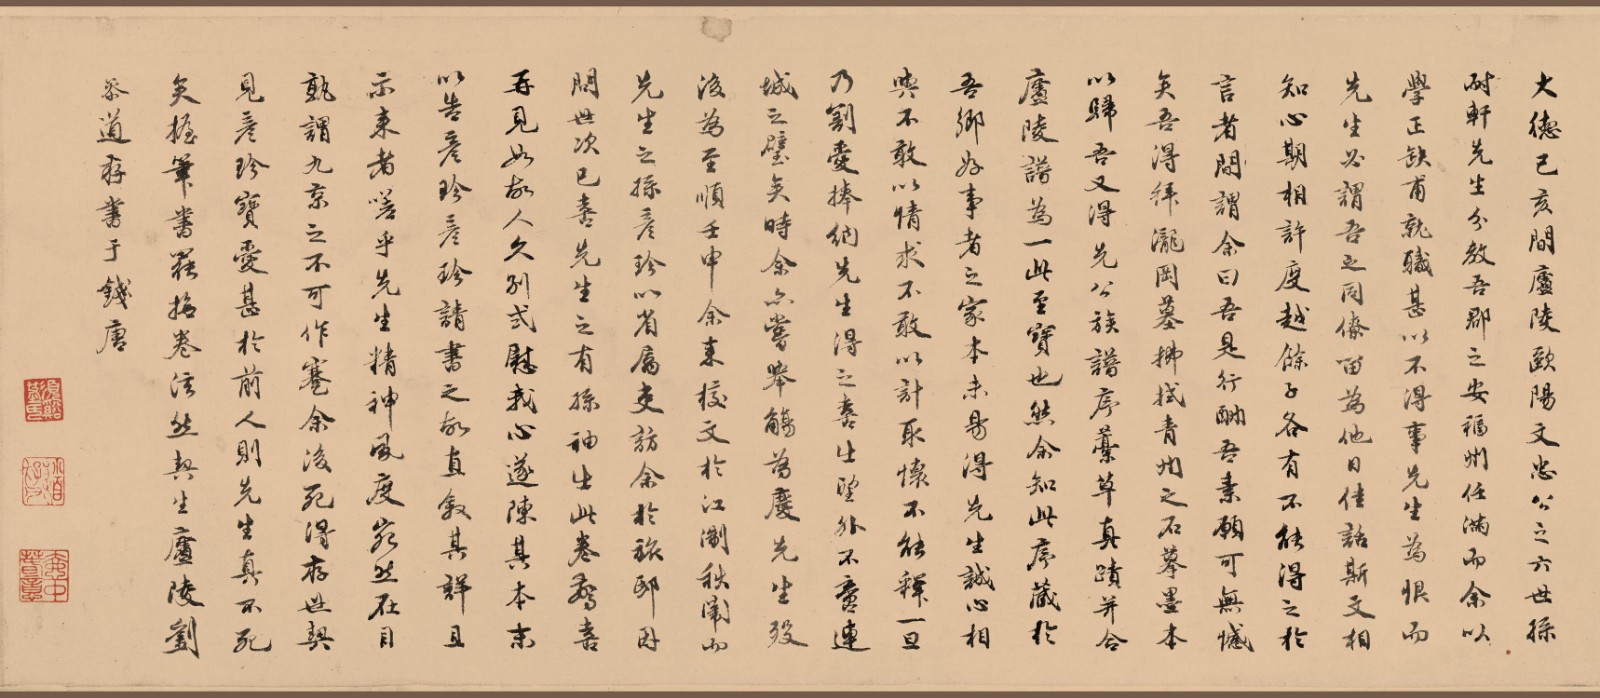 大德己亥間廬陵歐陽文忠公之六世孫
耐軒先生分教吾郡之安福州任滿而余以
學正缺甫就職甚以不得事先生為恨而
先生必謂吾之同僚留為他日佳話斯文相
知心期相許度越餘子各有不能得之於
言者間謂余曰吾是行酬吾素願可無憾
矣吾得拜瀧岡墓拂拭青州之石摹墨本
以歸吾又得先公族譜序藁草真蹟并合
廬陵譜為一此至寶也然余知此序藏於
吾鄉好事者之家本未易得先生誠心相
與不敢以情求不敢以計取懷不能釋一旦
乃割愛捧納先生得之喜出望外不啻連
城之璧矣時余亦嘗舉觴為慶先生歿
後為至順壬申余來校文於江淛秩闈而
先生之孫彥珍以省屬吏訪余於旅邸因
問世次已喜先生之有孫袖出此卷驚喜
再見如故人久別式慰我心遂陳其本末
以告彥珍彥珍請書之故直敘其詳且
示來者嗟乎先生精神風度宛然在目
孰謂九京之不可作蹇余後死得存世契
見彥珍寶愛甚於前人則先生真不死
矣握筆書罷掩卷泫然契生廬陵劉
恭道存書于錢唐